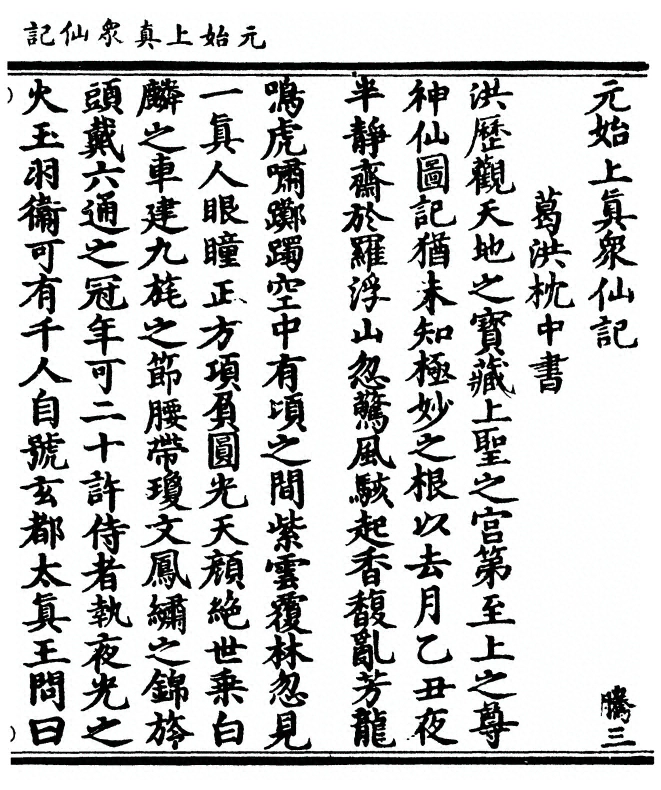 元始上真衆仙記
元始上真衆仙記
騰三
葛洪枕中書
洪歷觀天地之寶藏上聖之宫第至上之尊
神仙圖記猶未知極妙之根以去月乙丑夜
半靜齋於羅浮山忽驚風駭起香馥亂芳龍
鳴虎嘯躑躅空中有頃之間紫雲覆林忽見
一真人眼瞳正方項負圓光天顔絶世乗白
麟之車建九旄之節腰帶瓊文鳳繡之錦旂
頭戴六通之冠年可二十許侍者執夜光之
火玉羽衛可有千人自號玄都太真王問曰